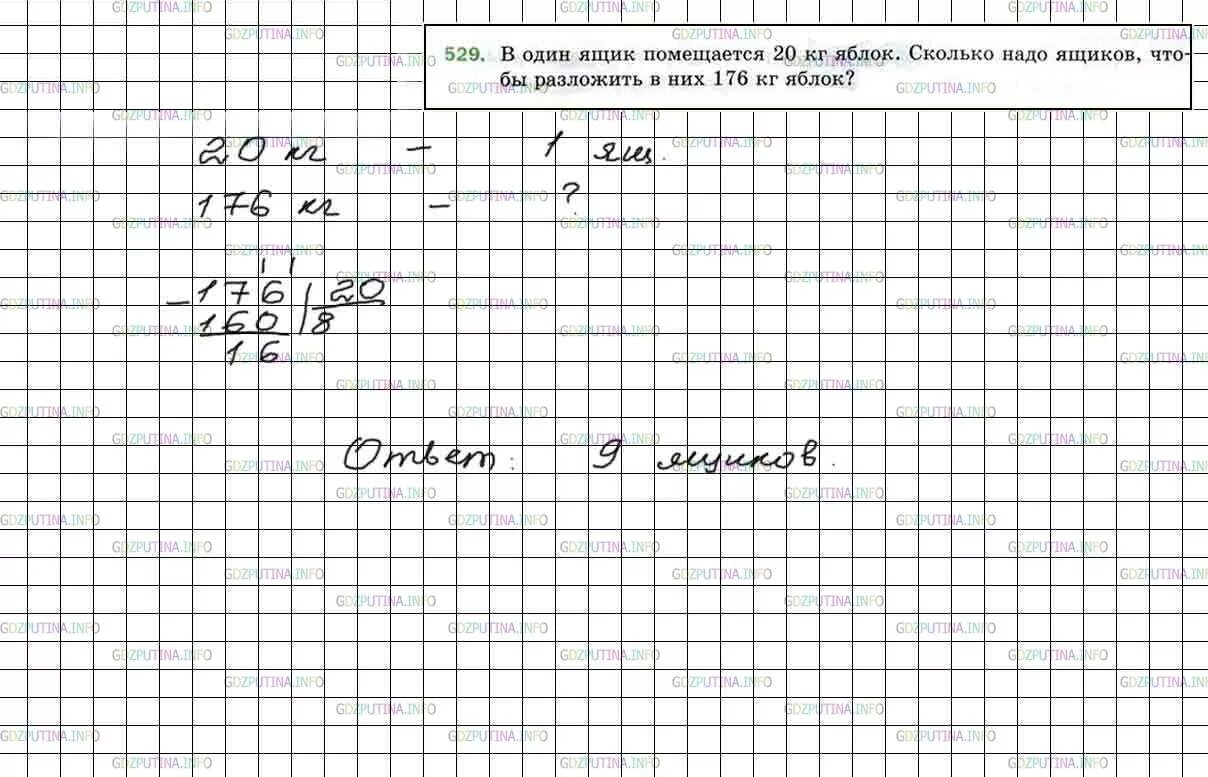 529. В один ящик помещается 20 кг яблок. Сколько надо ящиков, что-
бы разложить в них 176 кг яблок?
20 кг - 1 ящ.
176 кг - ?
-176 | 20
160 | 8
16
Ответ: 9 ящиков.
GDZPUTINA.INFO